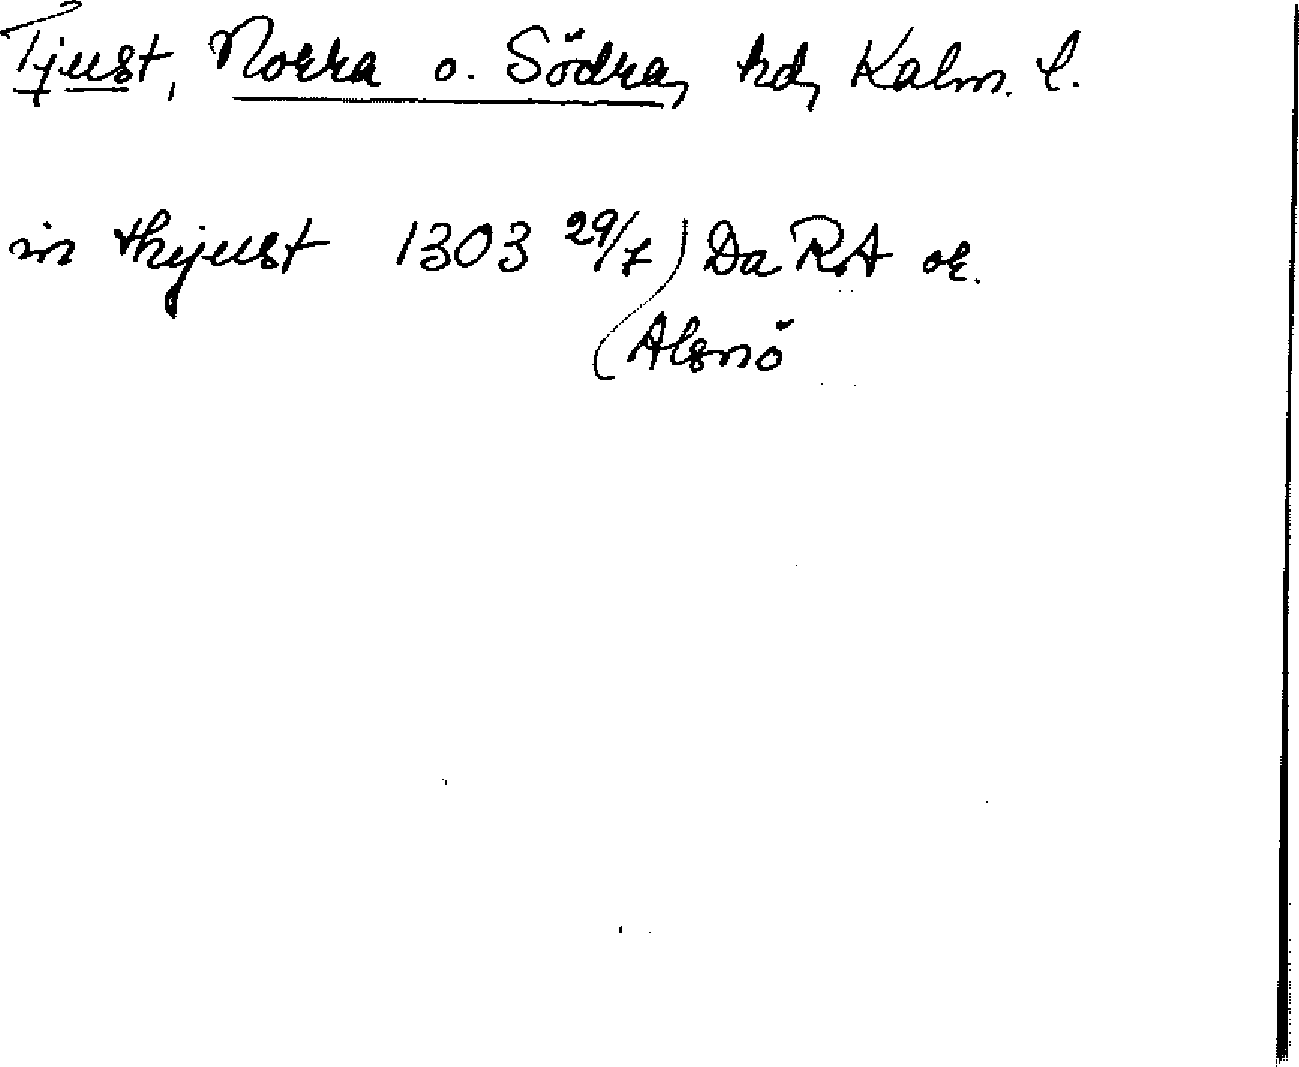 Tjust, Norra o. Södra, hd, Kalm. l.
in thyust 1303 29/7 Da RA or.
Alsnö